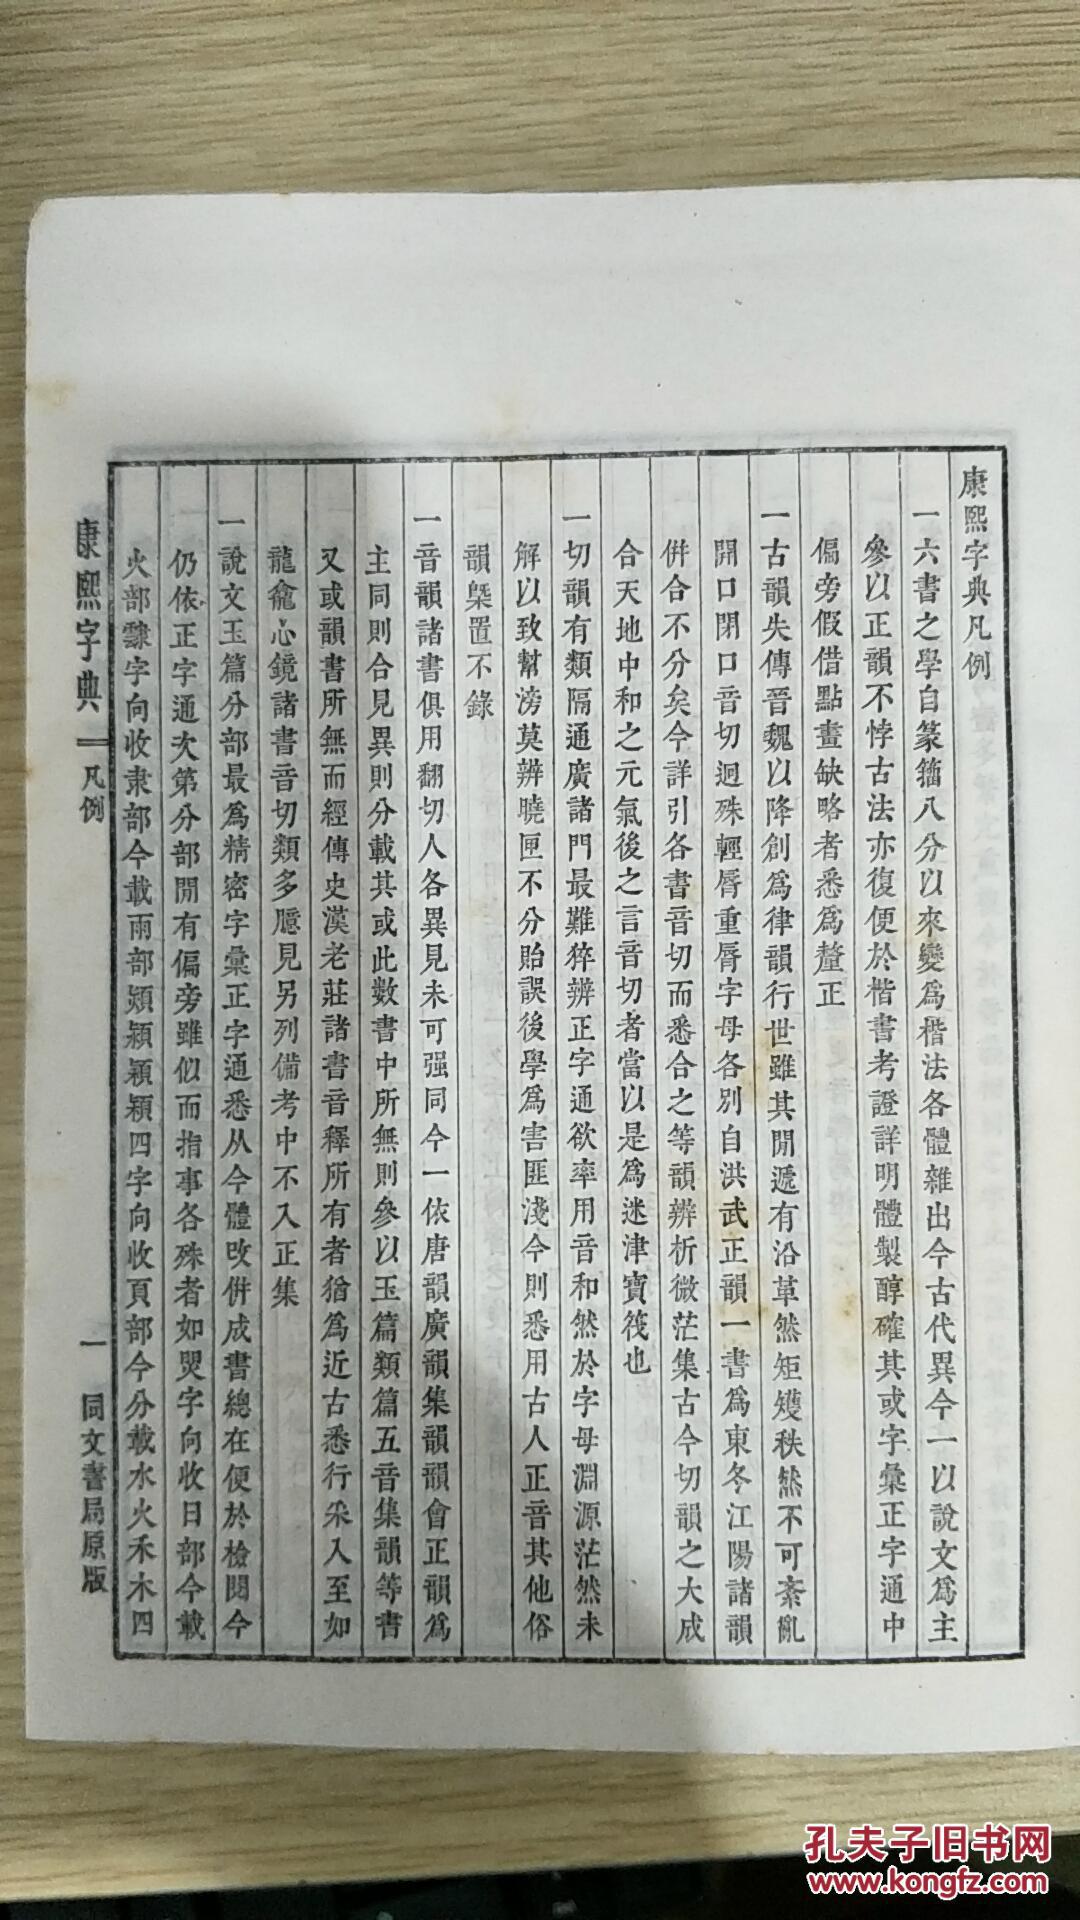 康熙字典凡例
一六書之學自篆籀八分以來變爲楷法各體雜出今古代異今一以說文爲主
參以正韻不悖古法亦復便於楷書考證詳明體製醇確其或字彙正字通中
偏旁假借點畫缺略者悉爲釐正
一古韻失傳晉魏以降創爲律韻行世雖其閒遞有沿革然矩矱秩然不可紊亂
開口閉口音切迥殊輕脣重脣字母各別自洪武正韻一書爲東冬江陽諸韻
倂合不分矣今詳引各書音切而悉合之等韻辨析微茫集古今切韻之大成
合天地中和之元氣後之言音切者當以是爲迷津寶筏也
一切韻有類隔通廣諸門最難猝辨正字通欲率用音和然於字母淵源茫然未
解以致幫滂莫辨曉匣不分貽誤後學爲害匪淺今則悉用古人正音其他俗
韻槩置不錄
一音韻諸書俱用翻切人各異見未可强同今一依唐韻廣韻集韻韻會正韻爲
主同則合見異則分載其或此數書中所無則參以玉篇類篇五音集韻等書
又或韻書所無而經傳史漢老莊諸書音釋所有者猶爲近古悉行采入至如
龍龕心鏡諸書音切類多臆見另列備考中不入正集
一說文玉篇分部最爲精密字彙正字通悉从今體改倂成書總在便於檢閱今
仍依正字通次第分部閒有偏旁雖似而指事各殊者如煛字向收日部今載
火部𩃬字向收隶部今載雨部熲潁穎頴四字向收頁部今分載水火禾木四
康熙字典 凡例 一 同文書局原版
孔夫子旧书网
www.kongfz.com